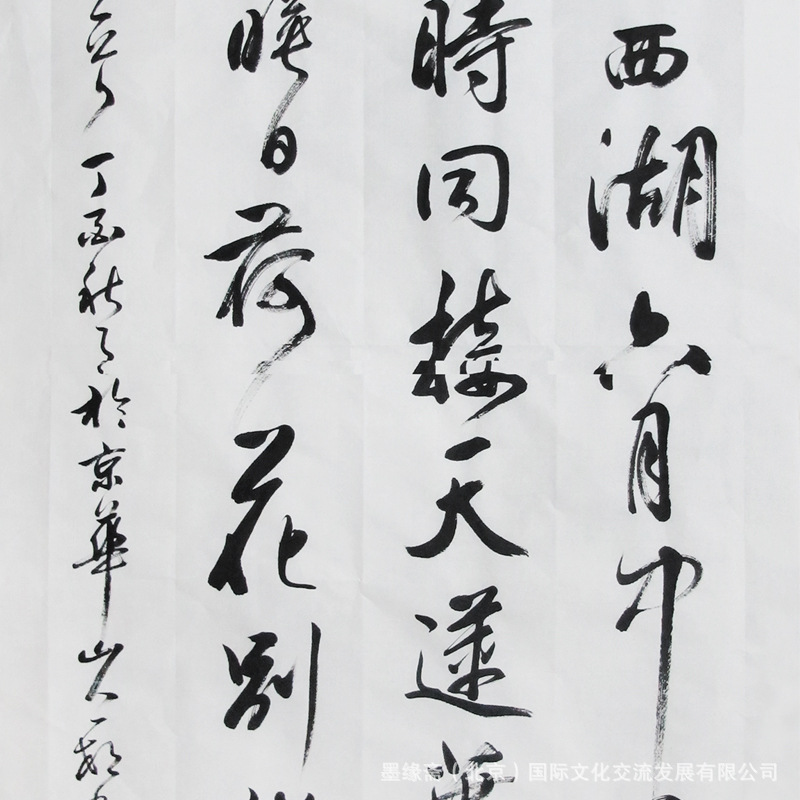 西湖六月中
時同接天蓮葉
暎日荷花別
丁酉秋月於京華
墨缘斋（北京）国际文化交流发展有限公司